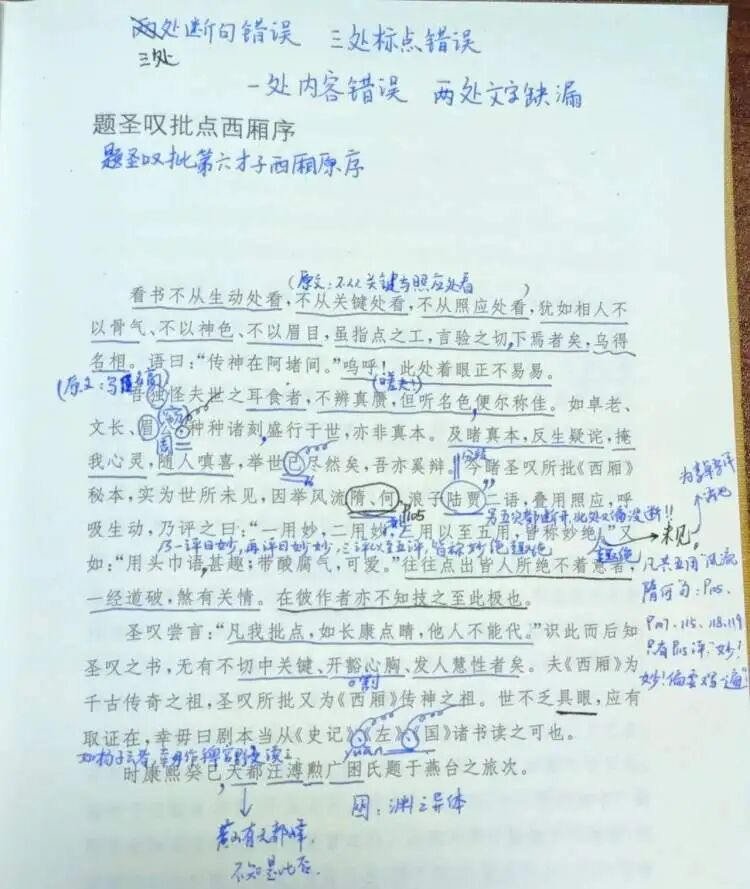 两处断句错误 三处标点错误
三处
一处内容错误 两处文字缺漏
题圣叹批点西厢序
题圣叹批第六才子西厢原序
(原文:不从关键与照应处看)
看书不从生动处看,不从关键处看,不从照应处看,犹如相人不
以骨气、不以神色、不以眉目,虽指点之工,言验之切下焉者矣,乌得
名相。语曰:“传神在阿堵间。”呜呼!此处着眼正不易易。
吾独怪夫世之耳食者,不辨真赝,但听名色便尔称佳。如卓老、
文长、眉公种种诸刻盛行于世,亦非真本。及睹真本,反生疑诧,掩
我心灵,随人嗔喜,举世已尽然矣,吾亦奚辩。今睹圣叹所批《西厢》
秘本,实为世所未见,因举风流隋、何,浪子陆贾二语,叠用照应,呼
P105
吸生动,乃评之曰:“一用妙,二用妙,三用以至五用,皆称妙绝”,又
乃一评曰妙,再评曰妙妙,三评以至五评,皆称妙绝趣绝
如:“用头巾语甚趣;带酸腐气,可爱。”往往点出皆人所绝不着意者,
趣绝
未见
一经道破,煞有关情。在彼作者亦不知技之至此极也。
圣叹尝言:“凡我批点,如长康点睛,他人不能代。”识此而后知
圣叹之书,无有不切中关键、开豁心胸、发人慧性者矣。夫《西厢》为
千古传奇之祖,圣叹所批又为《西厢》传神之祖。世不乏具眼,应有
取证在,幸毋曰剧本当从《史记》《左》《国》诸书读之可也。
时康熙癸巳天都汪溥勲广囦氏题于燕台之旅次。
囦:渊之异体
黄山有天都峰
不知是此否.
凡共五用“风流
隋何”句:P105、
P107、115、118、119
只有P115评“妙!
妙!偏要对遍”